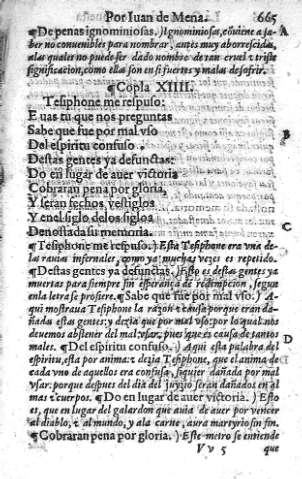 Por Iuan de Mena. 665
¶De penas ignominiosas.) Ignominiosas, cõuiene a sa- A
ber no conuenibles para nombrar, antes muy aborrescidas,
a las quales no puede ser dado nombre de tan cruel & triste
significacion, como ellas son en si fuertes y malas de sofrir.
¶Copla XIIII.
Tesiphone me respuso:
E uas tu que nos preguntas
Sabe que fue por mal vso B
Del espiritu confuso
Destas gentes ya defunctas:
Do en lugar de auer victoria
Cobraran pena por gloria,
Y seran fechos vestiglos
Y en el siglo delos siglos C
Denostada su memoria.
¶Tesiphone me respuso.) Esta Tesiphone era vna de-
las rauias infernales, como ya muchas vezes es repetido.
¶Destas gentes ya defunctas.) Esto es destas gentes ya
muertas para siempre sin esperança de redempcion, segun
en la letra se profiere. ¶Sabe que fue por mal vso.) A-
qui mostraua Tesiphone la razon & causa porque eran da-
ñadas estas gentes: y dezia que por mal vso: por lo qual nos
deuemos abstener del mal vsar, pues que es causa de tantos
males. ¶Del espiritu confuso.) Aqui esta palabra del D
espiritu, esta por anima: & dezia Tesiphone, que el anima de
cada vno de aquellos era confusa, siquier dañada por mal
vsar: porque despues del dia del juyzio seran dañados en al
mas & cuerpos. ¶Do en lugar de auer victoria.) Esto
es, que en lugar del galardon que auia de auer por vencer
al diablo, & al mundo, y ala carne, aura martyrio sin fin.
¶Cobraran pena por gloria.) Este metro se entiende
V v 5 que